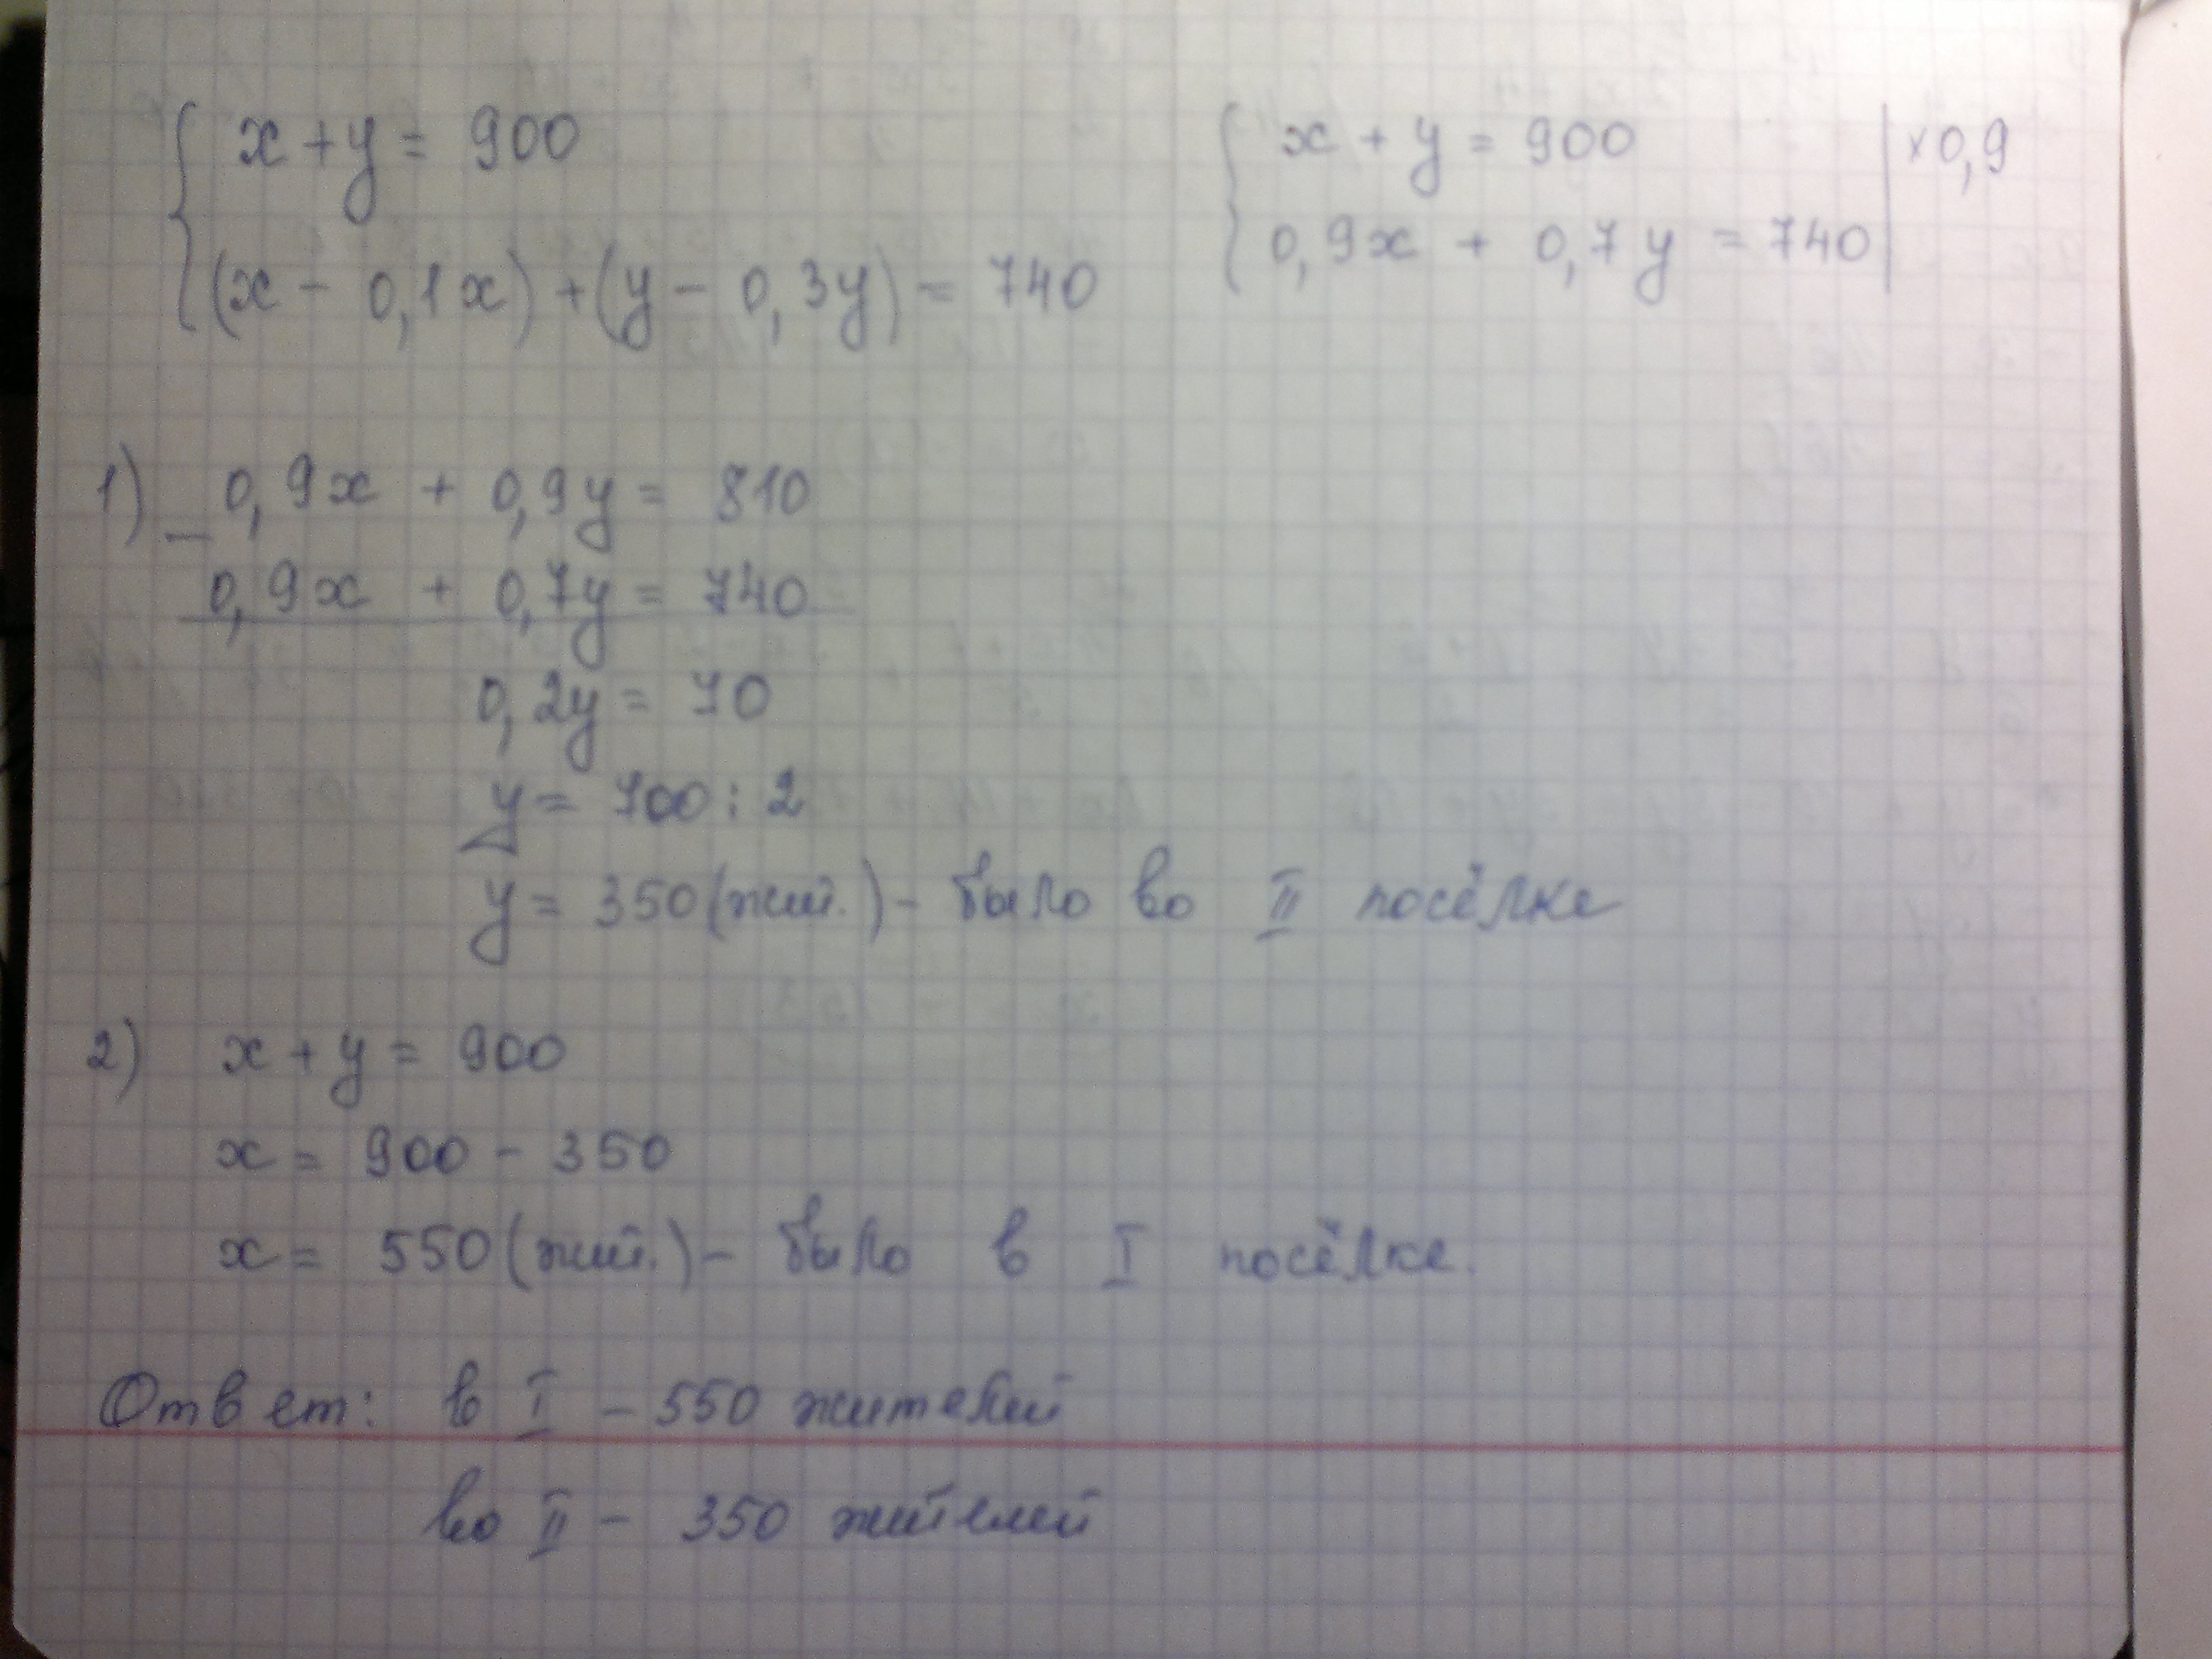 x + y = 900
(x - 0,1x) + (y - 0,3y) = 740
x + y = 900 | ×0,9
0,9x + 0,7y = 740
1) _ 0,9x + 0,9y = 810
0,9x + 0,7y = 740
0,2y = 70
y = 700 : 2
y = 350 (жит.) - было во II посёлке
2) x + y = 900
x = 900 - 350
x = 550 (жит.) - было в I посёлке.
Ответ: в I - 550 жителей
во II - 350 жителей